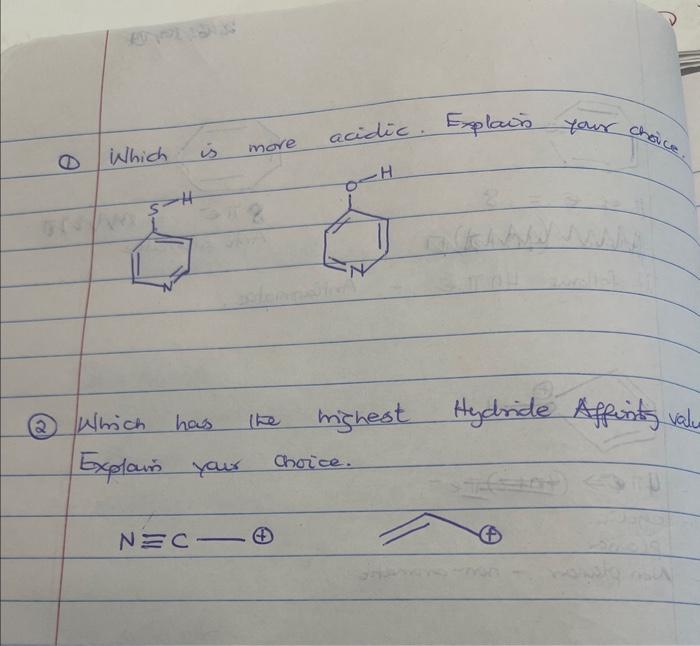 ① Which is more acidic. Explain your choice.
S-H
O-H
N
N
② Which has the highest Hydride Affinity valu
Explain your choice.
N≡C—⊕
⊕